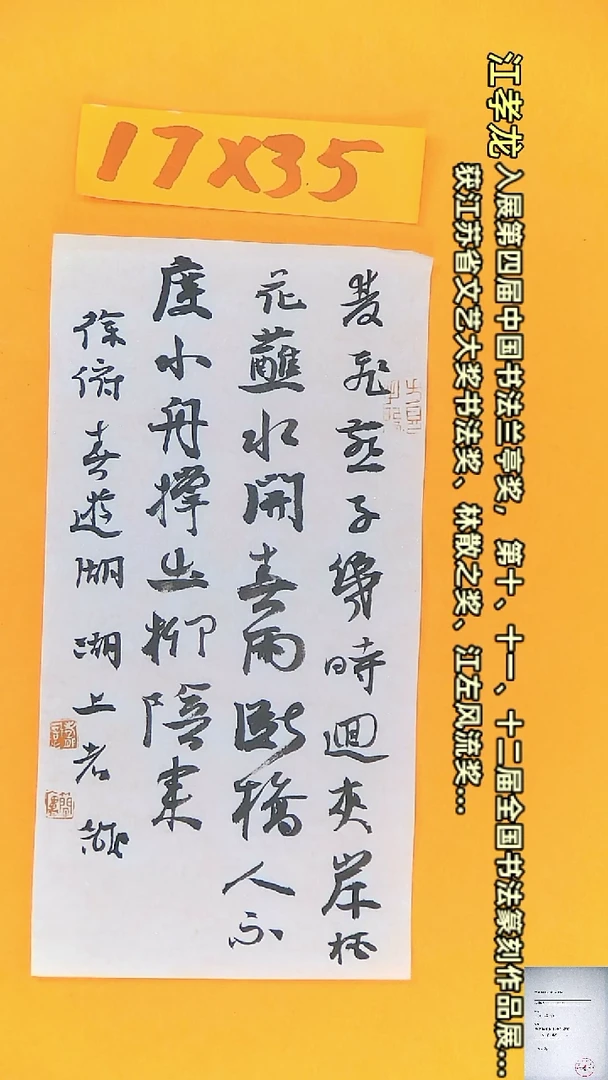 江孝龙 入展第四届中国书法兰亭奖,第十、十一、十二届全国书法篆刻作品展...
获江苏省文艺大奖书法奖、林散之奖、江左风流奖...
17X35
雙飛燕子幾時迴夾岸桃
花蘸水開春雨斷橋人不
度小舟撐出柳陰来
徐俯春遊湖 湖上孝龍